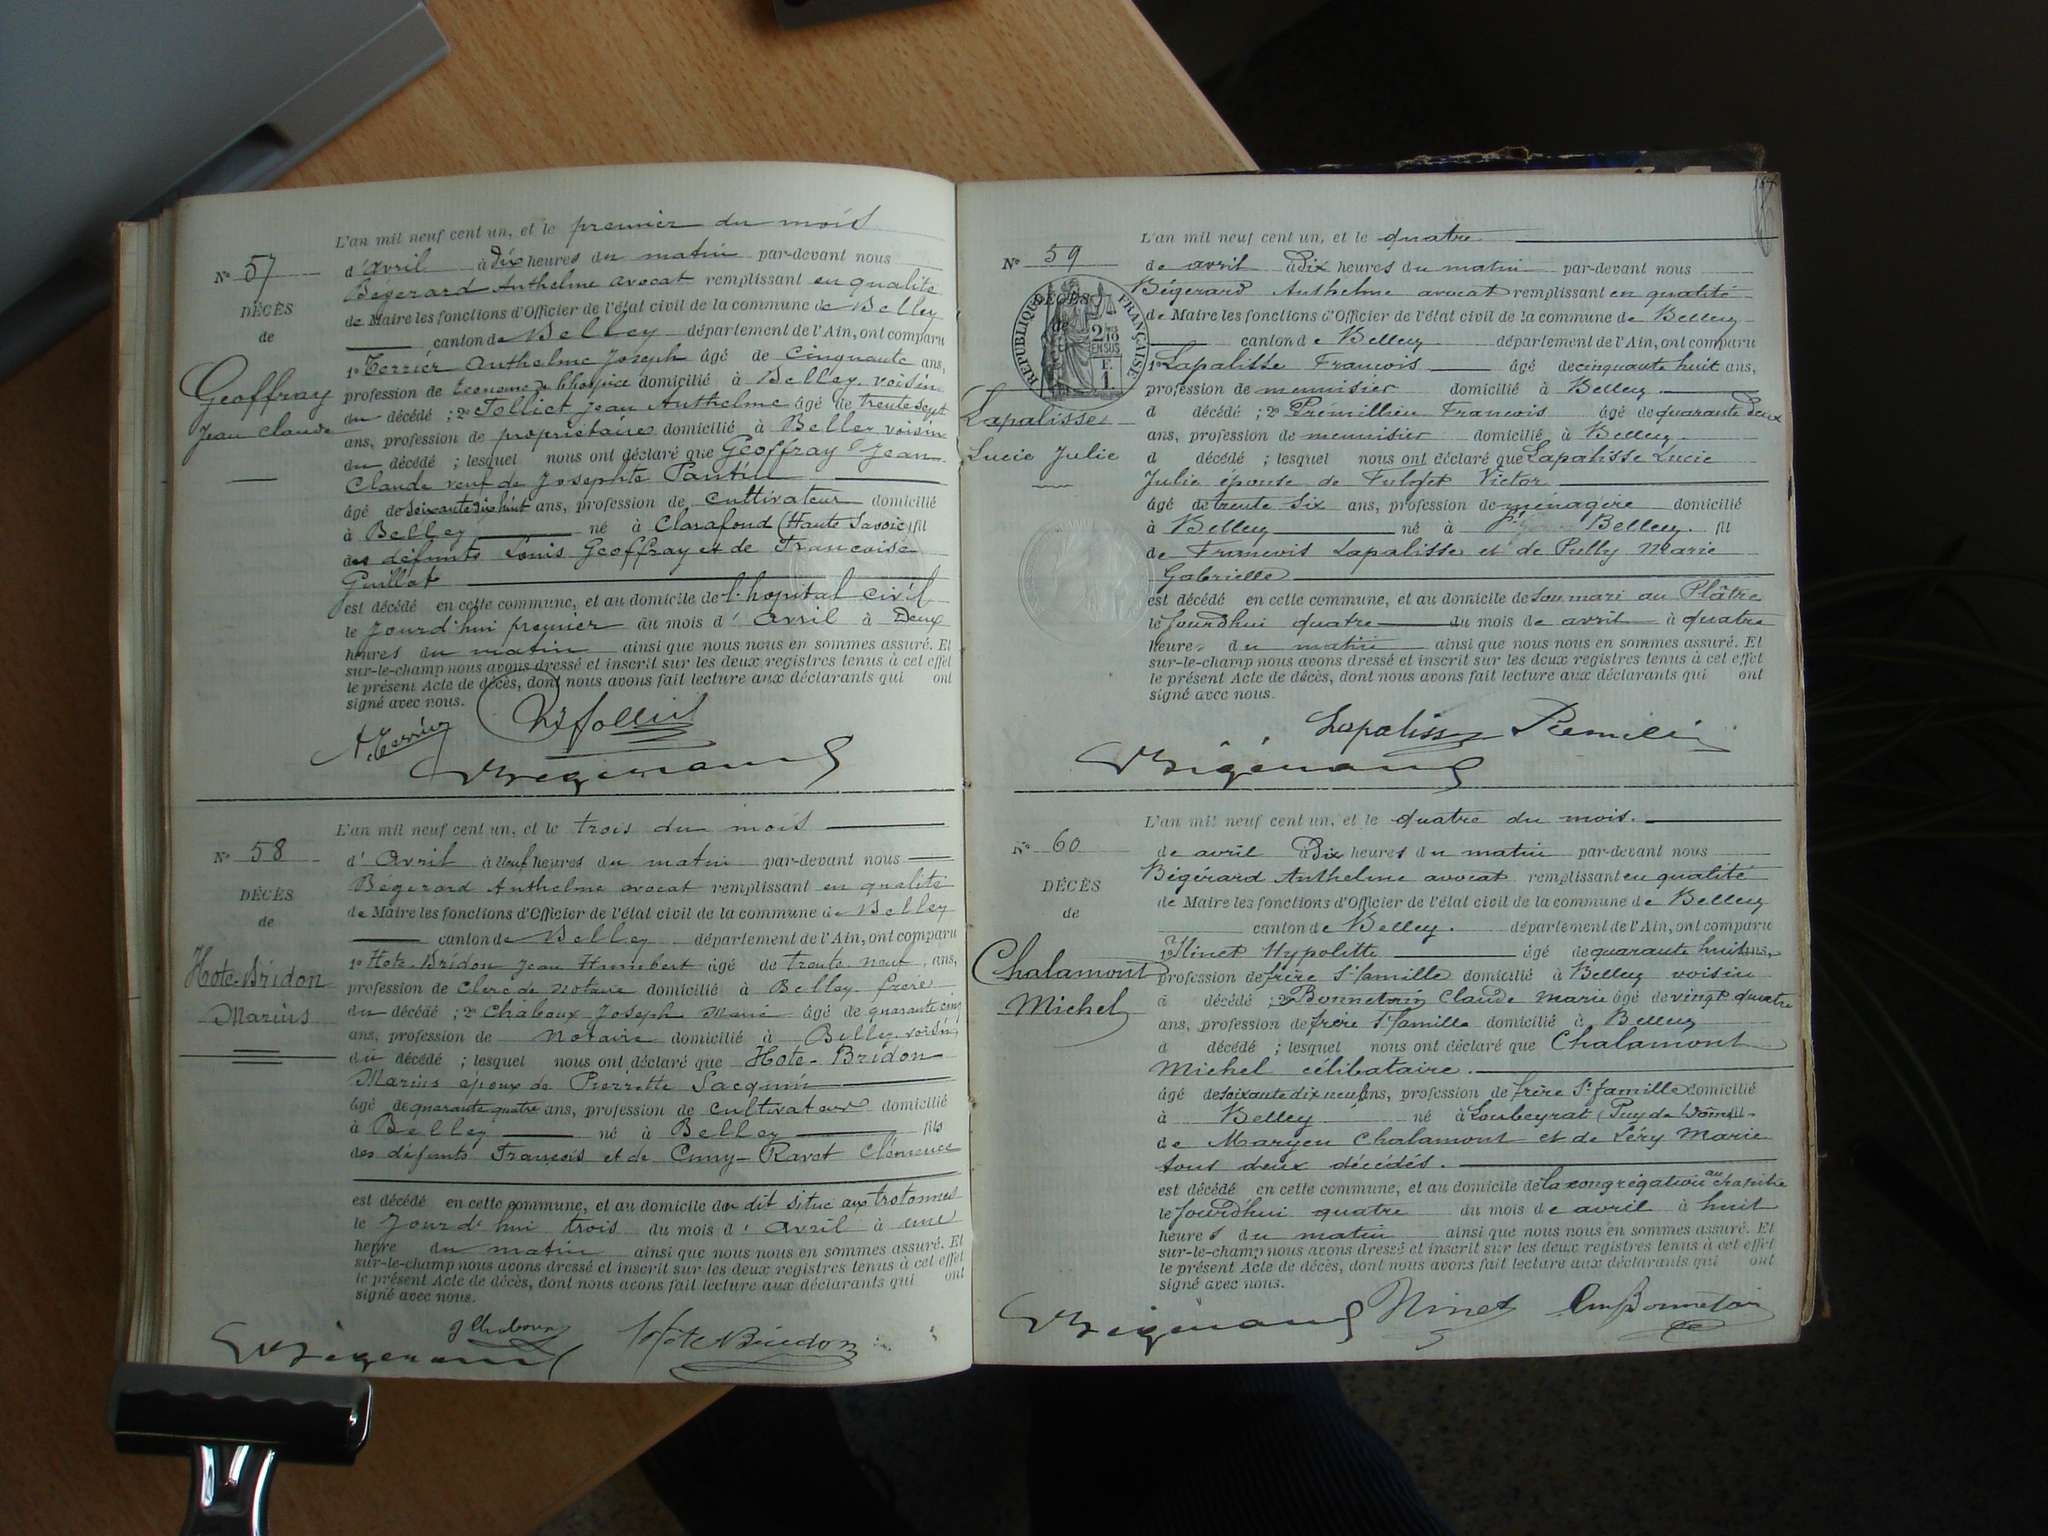 L'an mil neuf cent un, et le premier du mois
N° 57
d'Avril à Dix heures du matin par-devant nous
Bégerard Anthelme avocat remplissant en qualité
DÉCÈS
de Maire les fonctions d'Officier de l'état civil de la commune de Belley
de
canton de Belley département de l'Ain, ont comparu
1° Terrier Anthelme Joseph âgé de cinquante ans,
Geoffray
profession de Econome de l'hospice domicilié à Belley voisin
Jean Claude
du décédé ; 2° Tolliet Jean Anthelme âgé de trente sept
ans, profession de propriétaire domicilié à Belley voisin
du décédé ; lesquel nous ont déclaré que Geoffray Jean
Claude veuf de Josephte Pantin
âgé de soixante dix huit ans, profession de cultivateur domicilié
à Belley né à Clarafond (Haute Savoie) fil
des défunts Louis Geoffray et de Francoise
Guillot
est décédé en cette commune, et au domicile de l'hopital civil
le Jourd'hui premier du mois d'Avril à Deux
heures du matin ainsi que nous nous en sommes assuré. Et
sur-le-champ nous avons dressé et inscrit sur les deux registres tenus à cet effet
le présent Acte de décès, dont nous avons fait lecture aux déclarants qui ont
signé avec nous.
A. Terrier
L'an mil neuf cent un, et le trois du mois
N° 58
d'Avril à neuf heures du matin par-devant nous
Bégerard Anthelme avocat remplissant en qualité
DÉCÈS
de Maire les fonctions d'Officier de l'état civil de la commune de Belley
de
canton de Belley département de l'Ain, ont comparu
Hote-Bridon
1° Hote-Bridon Jean Humbert âgé de trente neuf ans,
profession de Clerc de Notaire domicilié à Belley frère
Marius
du décédé ; 2° Chaboux Joseph Marie âgé de quarante cinq
ans, profession de Notaire domicilié à Belley voisin
du décédé ; lesquel nous ont déclaré que Hote-Bridon
Marius époux de Pierrette Jacquin
âgé de quarante quatre ans, profession de cultivateur domicilié
à Belley né à Belley fils
des défunts François et de Cuny-Ravet Clémence
est décédé en cette commune, et au domicile du dit situé aux trotonnes
le Jourd'hui trois du mois d'Avril à une
heure du matin ainsi que nous nous en sommes assuré. Et
sur-le-champ nous avons dressé et inscrit sur les deux registres tenus à cet effet
le présent Acte de décès, dont nous avons fait lecture aux déclarants qui ont
signé avec nous.
Hote Bridon
L'an mil neuf cent un, et le quatre
N° 59
de avril à Dix heures du matin par-devant nous
Bégerard Anthelme avocat remplissant en qualité
DÉCÈS
RÉPUBLIQUE FRANÇAISE
de Maire les fonctions d'Officier de l'état civil de la commune de Belley
de
canton de Belley département de l'Ain, ont comparu
1° Lapalisse Francois âgé de cinquante huit ans,
profession de menuisier domicilié à Belley
Lapalisse
d décédé ; 2° Prémillieu Francois âgé de quarante deux
ans, profession de menuisier domicilié à Belley
Lucie Julie
d décédé ; lesquel nous ont déclaré que Lapalisse Lucie
Julie épouse de Victor
âgé de trente six ans, profession de ménagère domicilié
à Belley né à Belley fil
de Francois Lapalisse et de Pully Marie
Gabrielle
est décédé en cette commune, et au domicile de son mari au Plâtre
le Jourdhui quatre du mois de avril à quatre
heures du matin ainsi que nous nous en sommes assuré. Et
sur-le-champ nous avons dressé et inscrit sur les deux registres tenus à cet effet
le présent Acte de décès, dont nous avons fait lecture aux déclarants qui ont
signé avec nous.
Lapalisse
L'an mil neuf cent un, et le quatre du mois.
N° 60
de avril à Dix heures du matin par-devant nous
Bégérard Anthelme avocat remplissant en qualité
DÉCÈS
de Maire les fonctions d'Officier de l'état civil de la commune de Belley
de
canton de Belley. département de l'Ain, ont comparu
1° Ninet Hypolitte âgé de quarante huit ans,
Chalamont
profession de frère Ste famille domicilié à Belley voisin
Michel
d décédé ; 2° Bonnetain Claude Marie âgé de vingt quatre
ans, profession de frère Ste famille domicilié à Belley
d décédé ; lesquel nous ont déclaré que Chalamont
Michel célibataire.
âgé de soixante dix neuf ans, profession de frère Ste famille domicilié
à Belley né à Loubeyrat (Puy de Dôme) fil
de Maryeu Chalamont et de Léry Marie
tous deux décédés.
est décédé en cette commune, et au domicile de la congrégation au chapitre
le Jourdhui quatre du mois de avril à huit
heures du matin ainsi que nous nous en sommes assuré. Et
sur-le-champ nous avons dressé et inscrit sur les deux registres tenus à cet effet
le présent Acte de décès, dont nous avons fait lecture aux déclarants qui ont
signé avec nous.
Ninet